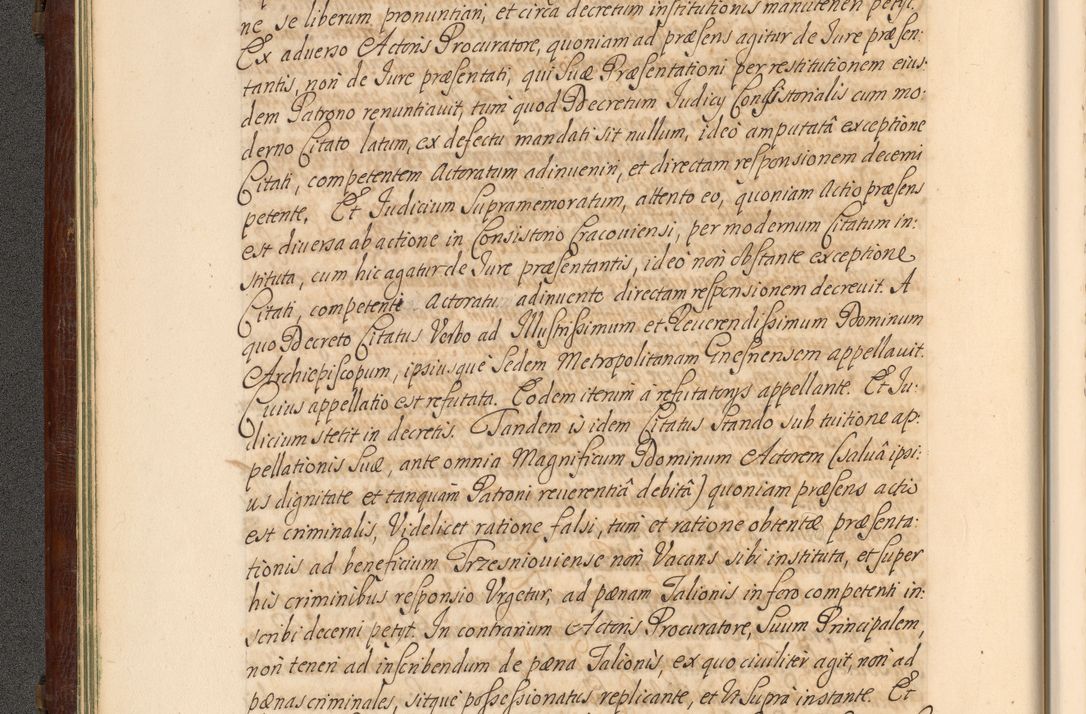 ne se liberum pronuntiari, et circa decretum institutionis manuteneri petyt.
Ex adverso Actoris Procuratore, quoniam ad præsens agitur de Jure præsen:
tantis, non de Jure præsentati, qui Suæ Præsentationi per restitutionem eius:
dem Patrono renuntiavit, tum quod Decretum Judicy Consistorialis cum mo:
derno Citato latum, ex defectu mandati sit nullum, ideo amputatâ exceptione
Citati, competentem Actoratum adinveniri, et directam responsionem decerni
petente. Et Judicium Supramemoratum, attento eo, quoniam Actio præsens
est diversa ab actione in Consistorio Cracoviensi, per modernum Citatum in:
stituta, cum hic agatur de Jure præsentantis, ideo non obstante exceptione
Citati, competenti Actoratu adinvento directam responsionem decrevit. A
quo Decreto Citatus Verbo ad Illustrissimum et Reverendissimum Dominum
Archiepiscopum, ipsiusque Sedem Metropolitanam Gnesnensem appellavit.
Cuius appellatio est refutata. Eodem iterum à refutatorys appellante. Et Ju:
dicium stetit in decretis. Tandem is idem Citatus Stando sub tuitione ap:
pellationis Suæ, ante omnia Magnificum Dominum Actorem (salvâ ipsi:
us dignitate et tanquam Patroni reverentiâ debitâ) quoniam præsens actio
est criminalis, Videlicet ratione falsi, tum et ratione obtentæ præsenta:
tionis ad beneficium Trzesnioviense non Vacans sibi instituta, et super
his criminibus responsio Urgetur, ad pænam Talionis in foro competenti in:
scribi decerni petyt. In contrarium Actoris Procuratore, Suum Principalem,
non teneri ad inscribendum de pæna Talionis, ex quo civiliter agit, non ad
pænas criminales, sitque possessionatus replicante, et Ut supra instante. Et